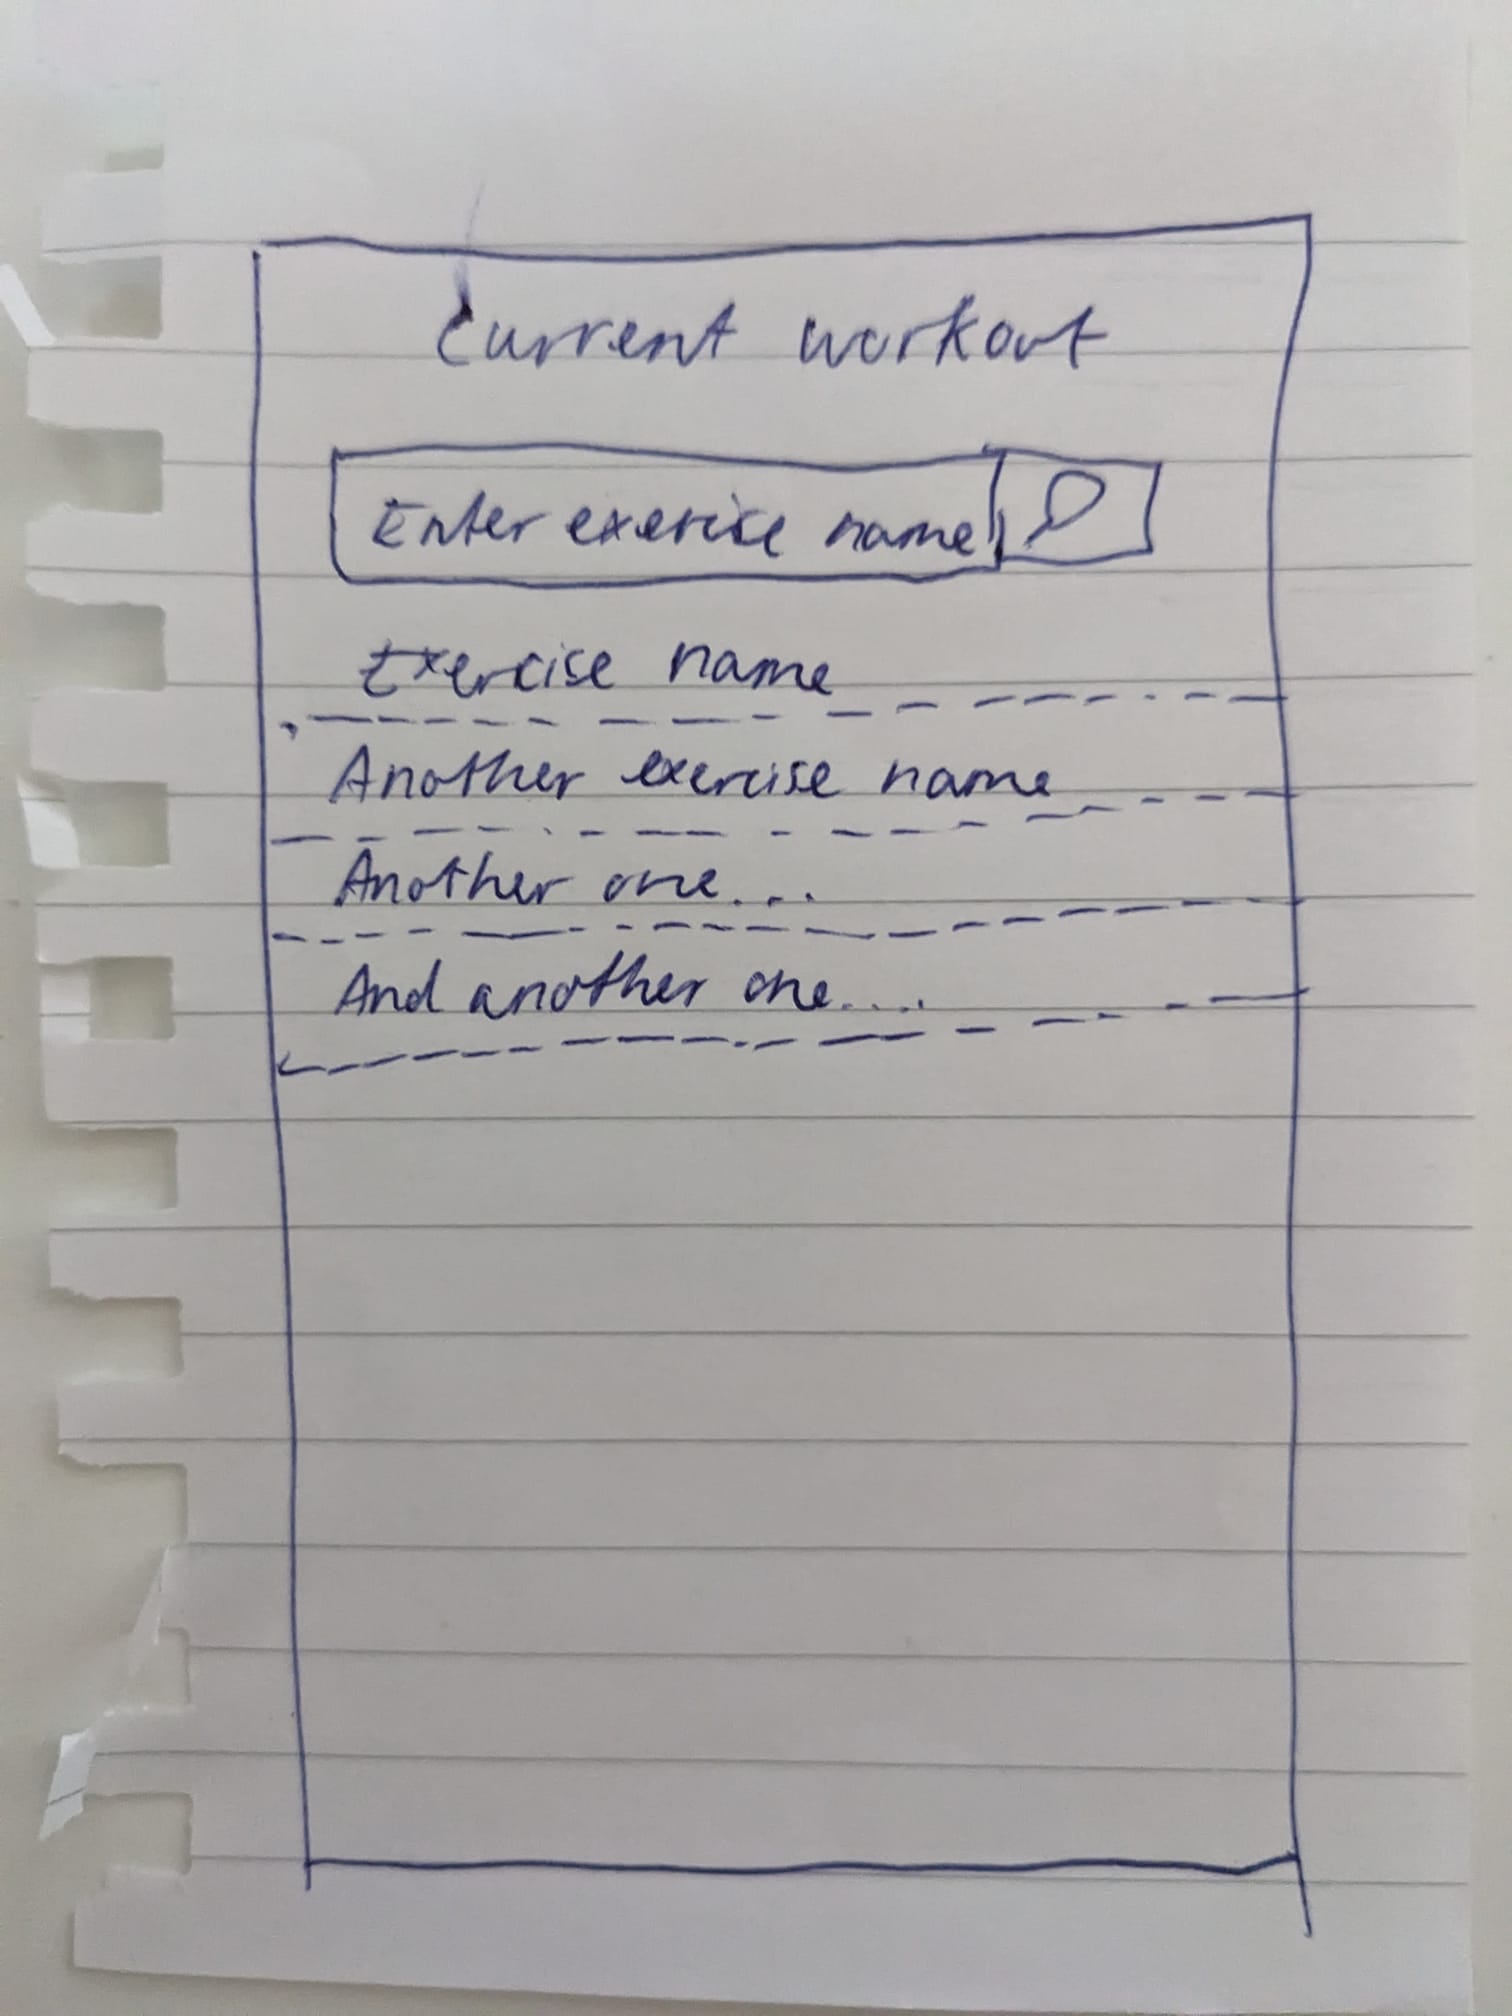 Current workout
Enter exercise name
Exercise name
Another exercise name
Another one...
And another one....